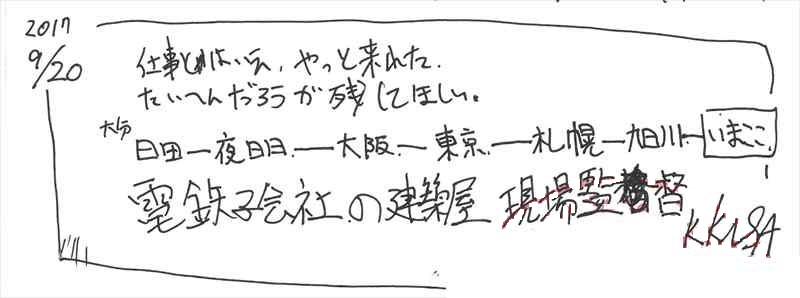 2017
9/20
仕事とはいえ、やっと来れた。
たいへんだろうが残してほしい。
大分
日田―夜明―大阪―東京―札幌―旭川―いまここ
電鉄子会社の建築屋 現場監督